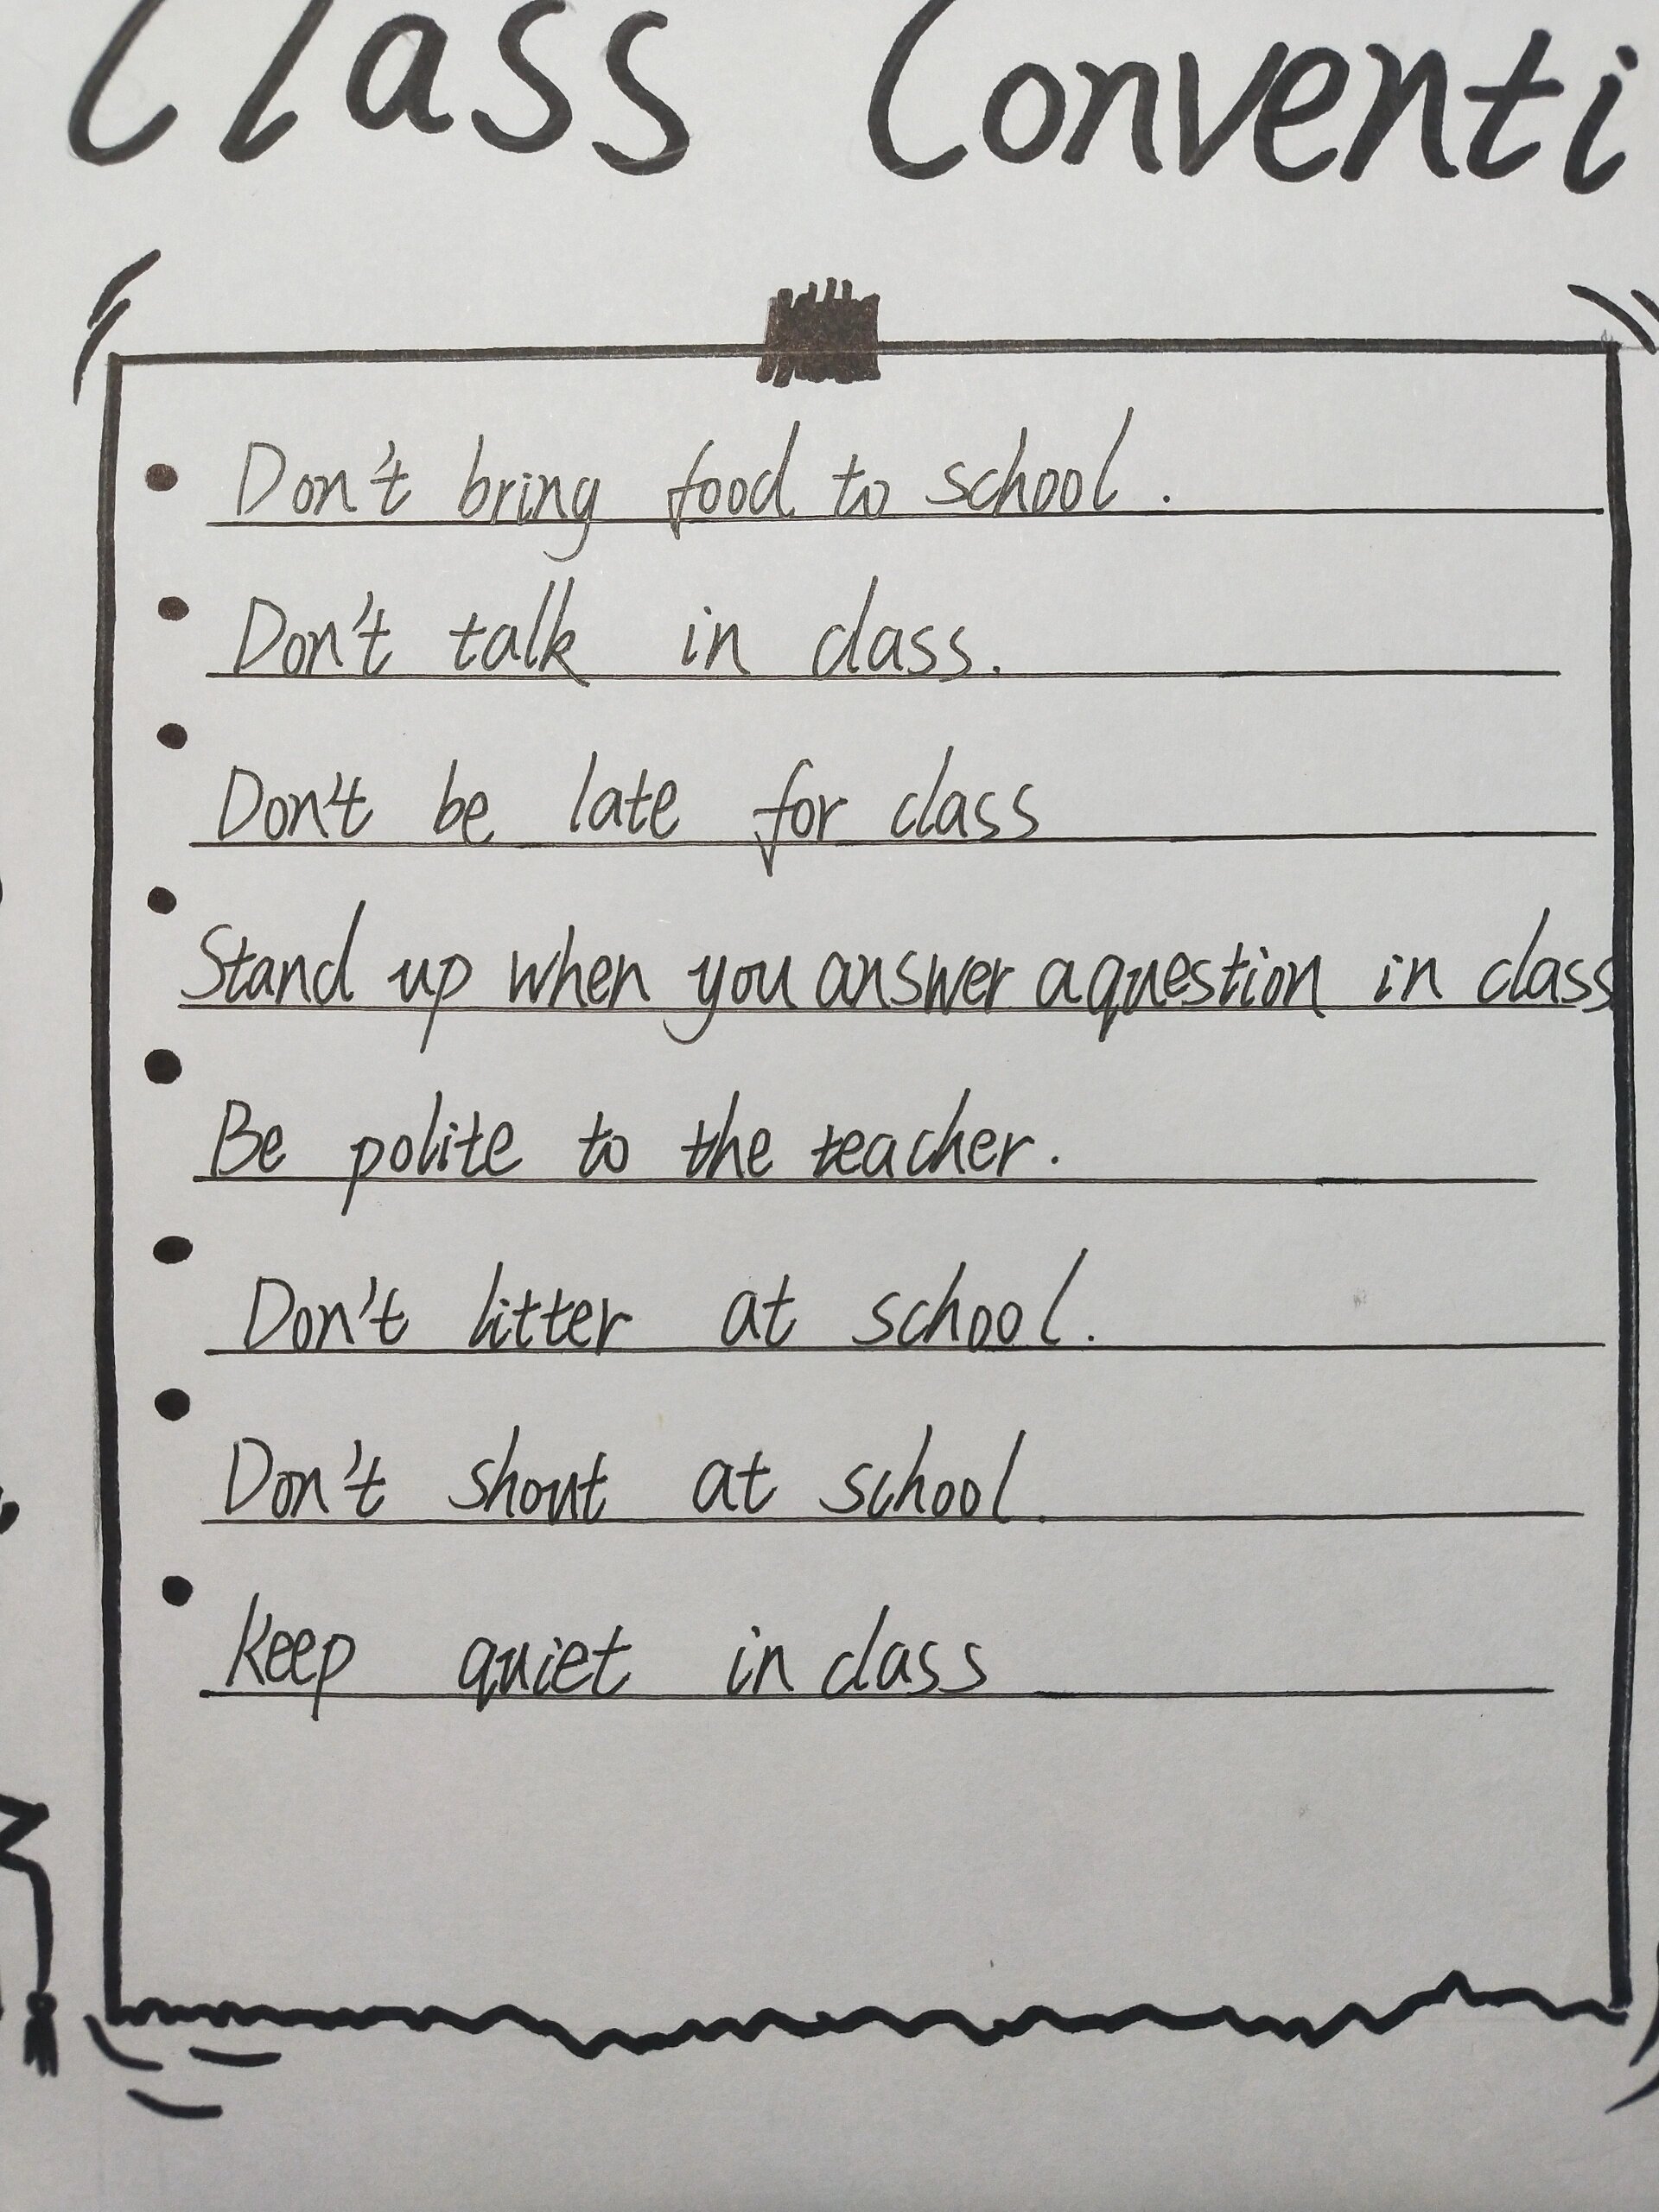 Class Conventi
Don't bring food to school.
Don't talk in class.
Don't be late for class
Stand up when you answer a question in class
Be polite to the teacher.
Don't litter at school.
Don't shout at school.
Keep quiet in class